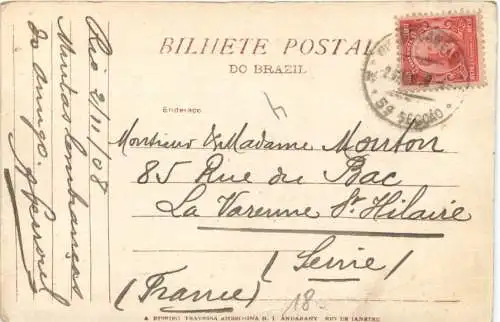 BILHETE POSTAL
DO BRAZIL
Endereço
Rio 2/11/08
Muitas lembranças
do amigo.
Monsieur & Madame Monton
85 Rue du Bac
La Varenne St Hilaire
(Seine)
(France)
5ª SECÇÃO
A RIBEIRO TRAVESSA RIO DE JANEIRO